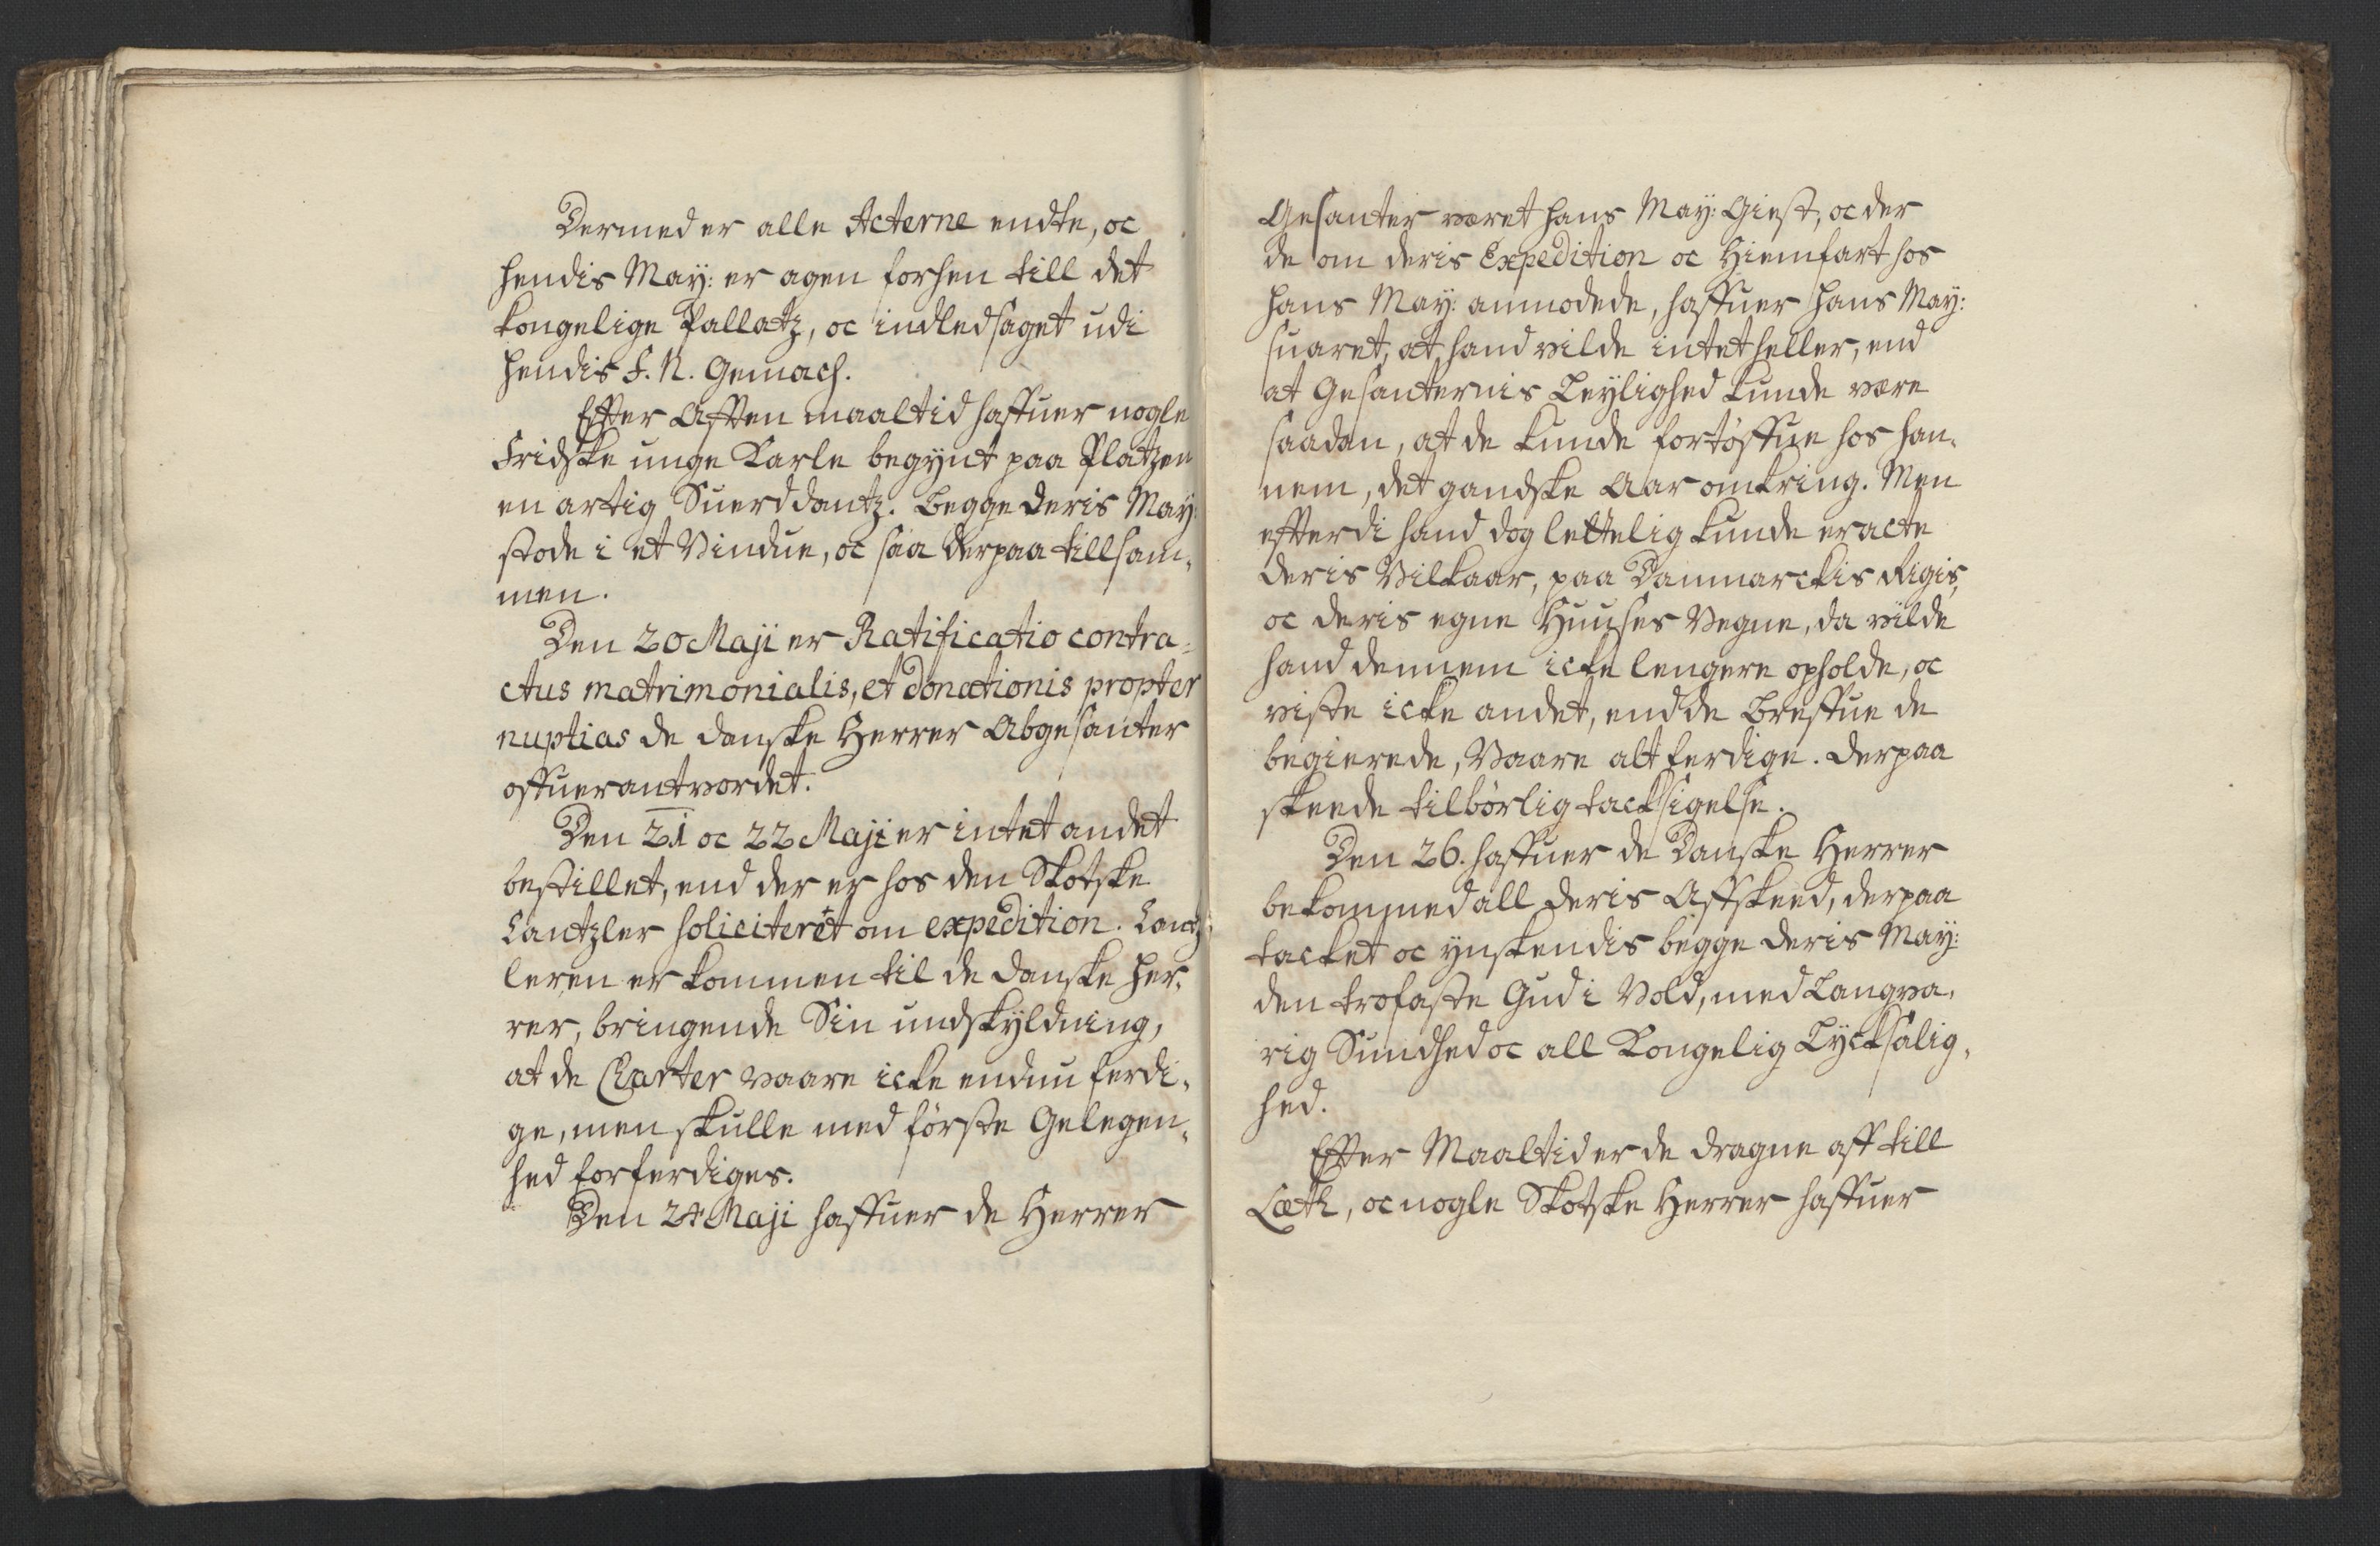 Dermed er alle Acterne endte, oc
hendis May: er agen forhen till det
kongelige Pallatz, oc indledsaget udi
hendis F. N. Gemach.
Effter Afften maaltid haffuer nogle
Fridske unge Karle begynt paa Platzen
en artig Suerddantz. Begge deris May:
stode i et Vindue, oc saa derpaa tillsam-
men.
Den 20 Maji er Ratificatio contra-
ctus matrimonialis, et donationis propter
nuptias de danske Herrer Abgesanter
offuerantvordet.
Den 21 oc 22 Maji er intet andet
bestillet, end der er hos den Skotske
Cantzler soliciteret om expedition. Cantz-
leren er kommen til de danske Her-
rer, bringende Sin undskyldning,
at de Charter vaare icke endnu ferdi-
ge, men skulle med første Gelegen-
hed forferdiges.
Den 24 Maji haffuer de Herrer
Gesanter veret hans May: Giest, oc der
de om deris Expedition oc Hiemfart hos
hans May: anmodede, haffuer hans May:
suaret, at hand vilde intet heller, end
at Gesanternis Leylighed kunde vere
saadan, at de kunde fortøffue hos han-
nem, det gandske Aar omkring. Men
effterdi hand dog lettelig kunde eracte
deris Vilkaar, paa Danmarckis Rigis,
oc deris egne Huuses Vegne, da vilde
hand dennem icke lengere opholde, oc
viste icke andet, end de Breffue de
begierede, Vaare alt ferdige. Derpaa
skeede tilbørlig tacksigelse.
Den 26. haffuer de Danske Herrer
bekommed all deris Affskeed, derpaa
tacket oc ynskendis begge deris May:
den trofaste Gud i Vold, med Langva-
rig Sundhed oc all Kongelig Lycksalig-
hed.
Effter Maaltid er de dragne aff till
Læth, oc nogle Skotske Herrer haffuer